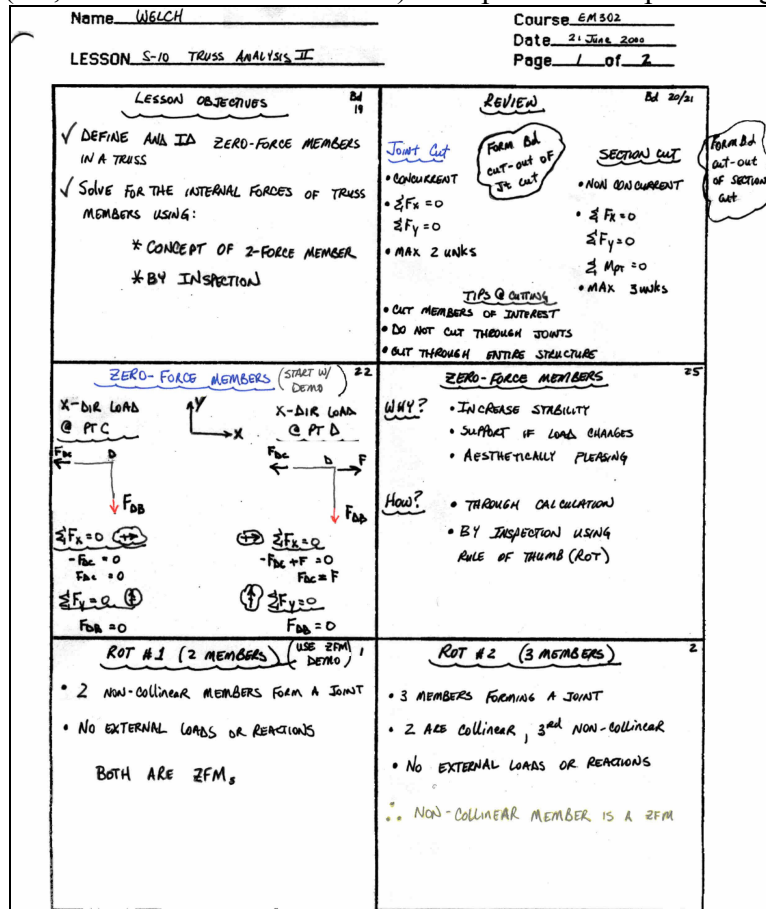 Name WELCH
Course EM302
Date 21 June 2000
LESSON S-10 TRUSS ANALYSIS II
Page 1 of 2
LESSON OBJECTIVES
Bd 19
✓ DEFINE AND ID ZERO-FORCE MEMBERS
IN A TRUSS
✓ SOLVE FOR THE INTERNAL FORCES OF TRUSS
MEMBERS USING:
* CONCEPT OF 2-FORCE MEMBER
* BY INSPECTION
REVIEW
Bd 20/21
Joint Cut
• CONCURRENT
• ΣFx = 0
ΣFy = 0
• MAX 2 UNKS
Form Bd
cut-out of
Jt cut
SECTION CUT
• NON CONCURRENT
• ΣFx = 0
ΣFy = 0
Σ Mpt = 0
• MAX 3 UNKS
Form Bd
cut-out
of SECTION
cut
TIPS @ CUTTING
• CUT MEMBERS OF INTEREST
• DO NOT CUT THROUGH JOINTS
• CUT THROUGH ENTIRE STRUCTURE
ZERO-FORCE MEMBERS (START W/ DEMO)
22
X-DIR LOAD
@ PT C
Y
X
X-DIR LOAD
@ PT D
FDC
D
FDB
ΣFx = 0
-FDC = 0
FDC = 0
ΣFy = 0
FDB = 0
FDC
D
F
FDB
ΣFx = 0
-FDC + F = 0
FDC = F
ΣFy = 0
FDB = 0
ZERO-FORCE MEMBERS
25
WHY?
• INCREASE STABILITY
• SUPPORT IF LOAD CHANGES
• AESTHETICALLY PLEASING
How?
• THROUGH CALCULATION
• BY INSPECTION USING
RULE OF THUMB (ROT)
ROT #1 (2 MEMBERS) (USE ZFM DEMO)
1
• 2 NON-COLLINEAR MEMBERS FORM A JOINT
• NO EXTERNAL LOADS OR REACTIONS
BOTH ARE ZFMs
ROT #2 (3 MEMBERS)
2
• 3 MEMBERS FORMING A JOINT
• 2 ARE COLLINEAR, 3rd NON-COLLINEAR
• NO EXTERNAL LOADS OR REACTIONS
∴ NON-COLLINEAR MEMBER IS A ZFM